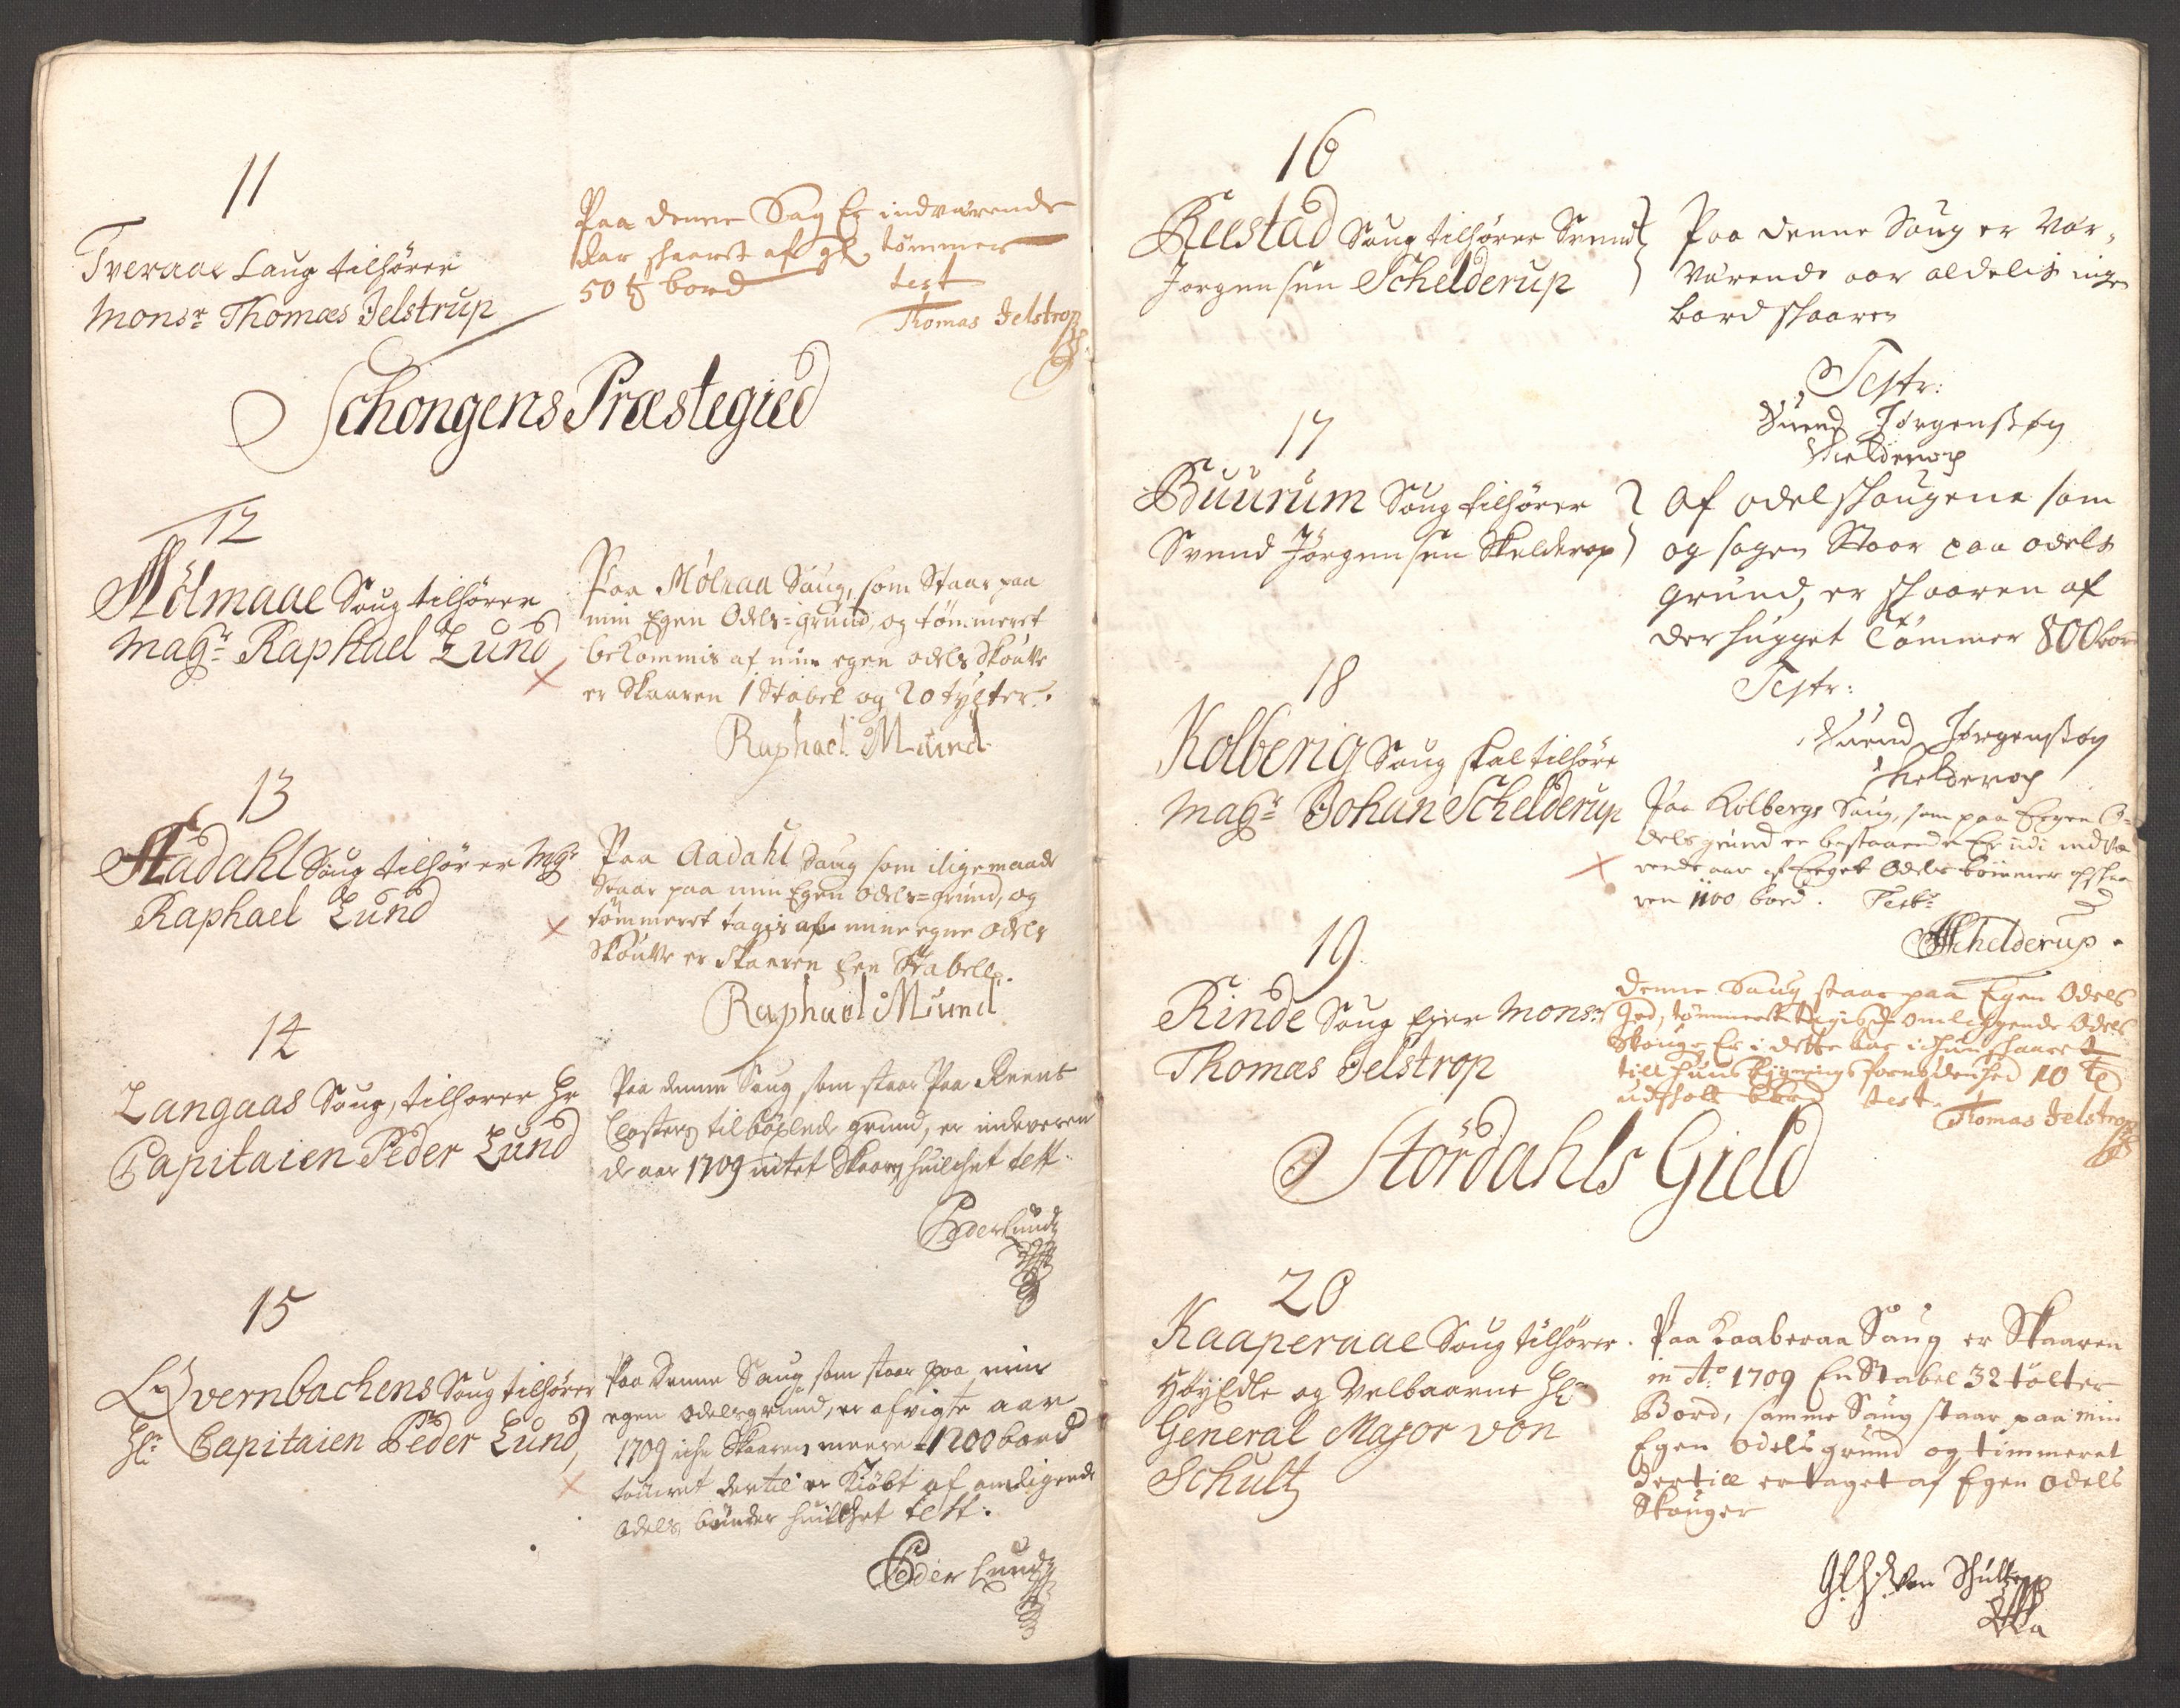 11
Tveraae Saug tilhører
Monsr Thomas Jelstrup
Paa denne Sag Er indværende
Aar skaaret af gl. tømmer
50 t bord
test
Thomas Jelstrop
Schongens Præstegied
12
Mölmaae Saug tilhører
Magr Raphael Lund
Paa Mölnaa Saug, som Staar paa
min Egen Odels-grund, og tömmeret
bekommis af min egen odels Skoutte
er Skaaren 1 Stabel og 20 tylter.
Raphael Mund
13
Aadahl Saug tilhører Mgr
Raphael Lund
Paa Aadahl Saug som iligemaade
Staar paa min Egen Odels-grund, og
tömmeret tagis af mine egne Odels
Skoutte er Skaaren Een Stabell.
Raphael Mund
14
Langaas Saug, tilhører Hr
Capitaien Peder Lund
Paa denne Saug som staar Paa Reens
Closters tilböxlede grund, er indeveren
de aar 1709 intet Skaaren huilchet test.
Peder Lund
15
Qvernbachens Saug tilhører
Hr Capitaien Peder Lund
Paa Denne Saug som staar paa min
egen odelsgrund, er afvigte aar
1709 iche Skaaren meere 1200 bord
tömret dertil er Kiöbt af omligende
Odels bönder huilchet test.
Peder Lund
16
Reestad Saug tilhører Svend
Jørgensen Schelderup
Paa denne Saug er Nær-
Værende aar aldelis ingen
bord skaaren
Testr:
Suend Jørgensøn
Skelderop
17
Buurum Saug tilhører
Svend Jörgensen Skelderop
Af odelskougene som
og sagen Staar paa odels
grund, er skaaren af
der hugget Tömmer 800 bor
Testr:
Suend Jørgensøn
Skelderop
18
Kolberig Saug skal tilhøre
Magr Johan Schelderup
Paa Kolbergs Saug, som paa Eegen O-
dels grund er bestaaende Er udi indvæ
rende aar af Eeget Odels tömmer af skaa
ren 1100 bord. Testr
Schelderup.
19
Rinde Saug Ejer Monsr
Thomas Jelstrop
Denne Saug staar paa Egen Odels
Jord, tømmeret tagis af omliggende Odels
Skouge, Er i dette Aar ichun skaaret
till huus bygnings fornødenhed 10 t
udskott bord test.
Thomas Jelstrop
Stördahls Gield
20
Kaaperaae Saug tilhører.
HøyEdle og Velbaarne Hr
General Major von
Schult
Paa Kaaberaa Saug er Skaaren
in Ao 1709 En Stabel 32 tölter
Bord, samme Saug staar paa min
Egen odels grund og timmeret
dertill er taget af Egen odels
Skouger
von Schultz